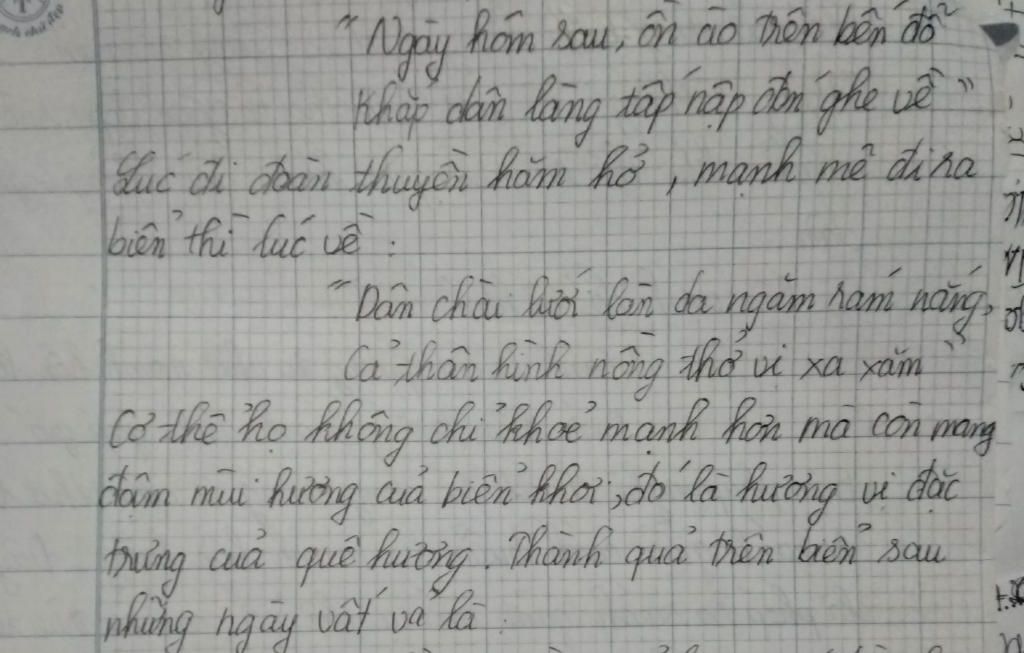 "Ngày hôm sau, ồn ào trên bến đỗ
Khắp dân làng tấp nập đón ghe về"
Lúc đi đoàn thuyền hăm hở, mạnh mẽ đi ra
biển thì lúc về:
"Dân chài lưới làn da ngăm rám nắng,
Cả thân hình nồng thở vị xa xăm"
Cơ thể họ không chỉ khoẻ mạnh hơn mà còn mang
đậm mùi hương của biển khơi, đó là hương vị đặc
trưng của quê hương. Thành quả trên biển sau
những ngày vất vả là: